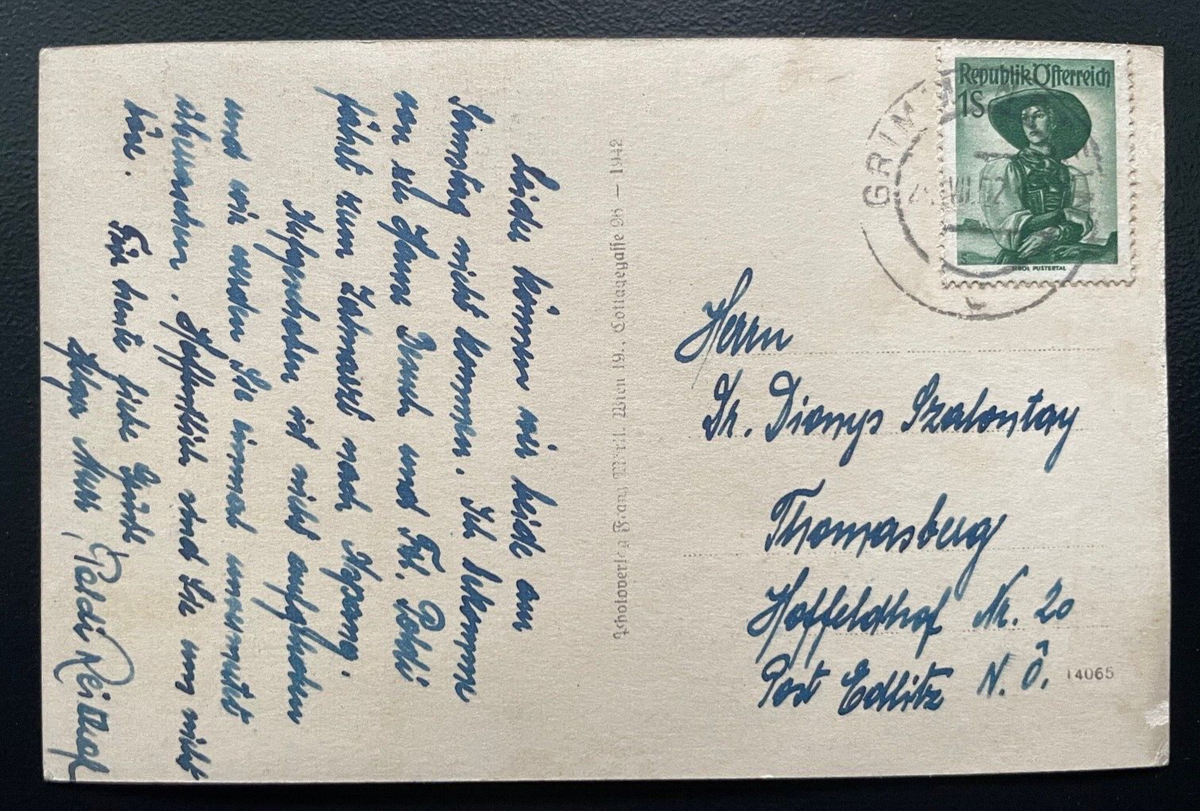 Leider können wir beide am
Samstag nicht kommen. Ich bekomme
von zu Hause Besuch und Frl. Poldi
fährt zum Zahnarzt nach Aspang.
Aufgeschoben ist nicht aufgehoben
und wir werden Sie einmal unvermutet
überraschen. Hoffentlich sind Sie uns nicht
böse. Für heute liebe Grüße
Poldi
Photoverlag Franz Mörtl, Wien 19., Cottagegasse 26 – 1942
Republik Österreich
1S
TIROL PUSTERTAL
GRIM
VII.52
Herrn
Dr. Dionys Szalontay
Thomasberg
Hoffeldhof Nr. 20
Post Edlitz N.Ö.
14065